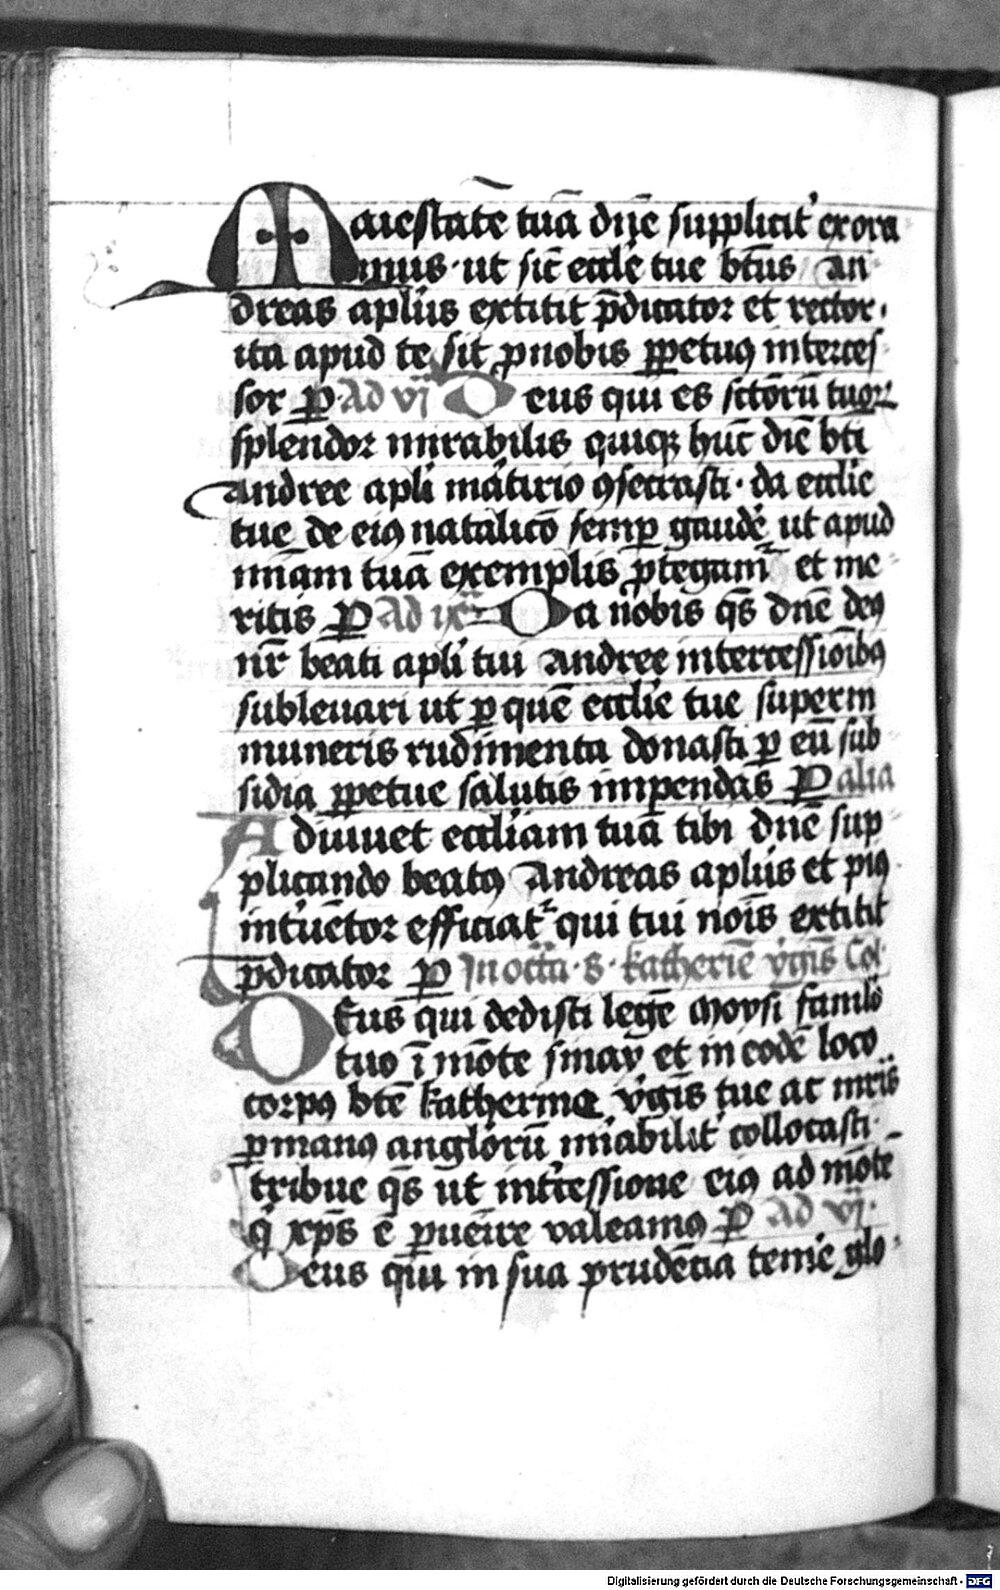 Maiestatē tuā dn̄e supplicit᷑ exora
mus · ut sic̄ eccl̄e tue bt̄us An
dreas apl̄us extitit p̄dicator et rector ·
ita apud te sit pnobis ꝑpetuꝰ interces
sor P · Ad vi Deus qui es sctōrū tuoꝝ
splendor mirabilis quiqꝫ hūc diē bt̄i
Andree apl̄i martirio ꝯsecrasti · da eccl̄ie
tue de eiꝰ natalicō semꝑ gaudē ut apud
miāam tuā exemplis ꝓtegam᷑ et me
ritis P Ad ix Da nobis qs̄ dn̄e deꝰ
nr̄ beati apl̄i tui Andree intercessiōibꝰ
subleuari ut ꝑ quē eccl̄ie tue superni
muneris rudimenta donasti ꝑ eū sub
sidia ꝑpetue salutis impendas P alia
Adiuuet eccl̄iam tuā tibi dn̄e sup
plicando beatꝰ Andreas apl̄us et piꝰ
int̓uētor efficiat᷑ qui tui nōis extitit
p̄dicator P In octa · s · katherīe v̓gīs Col̓
Deus qui dedisti legē Moysi famlō
tuo ī mōte sinay et in eodē loco
corpꝰ bt̄e katherine v̓gīs tue ac mr̄is
ꝑmanꝰ anglōrū mi̓abilit᷑ collocasti ·
tribue qs̄ ut int̓cessione eiꝰ ad mōte
q̓ xp̄s ē ꝑueīre valeamꝰ P Ad vi ·
Deus qui in sua prudētia tenīe glo